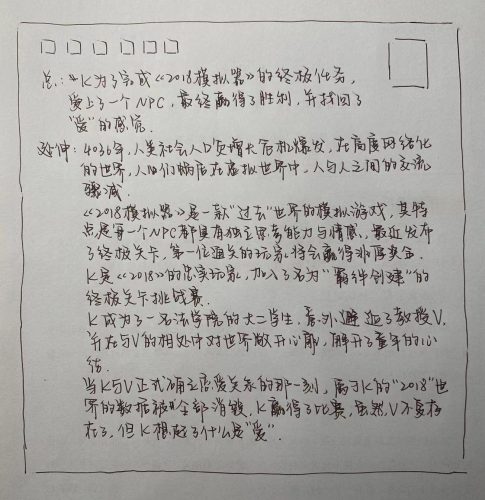 总:小K为了完成《2018模拟器》的终极任务,
爱上了一个NPC,最终赢得了胜利,并找回了
"爱"的感觉.
延伸:4036年,人类社会人口负增长危机爆发,在高度网络化
的世界,人们蜗居在虚拟世界中,人与人之间的交流
骤减.
《2018模拟器》是一款"过去"世界的模拟游戏,其特
点是每一个NPC都具有独立思考能力与情感,最近发布
了终极关卡,第一位通关的玩家将会赢得外厚奖金.
K是《2018》的忠实玩家,加入了名为"最终创建"的
终极关卡挑战赛.
K成为了一名法学院的大二学生,意外邂逅了教授V,
并在与V的相处中对世界敞开心扉,解开了童年的心
结.
当K与V正式确立恋爱关系的那一刻,属于K的"2018"世
界的数据被全部消毁,K赢得了比赛,虽然V不复存
在了,但K想起了什么是"爱".